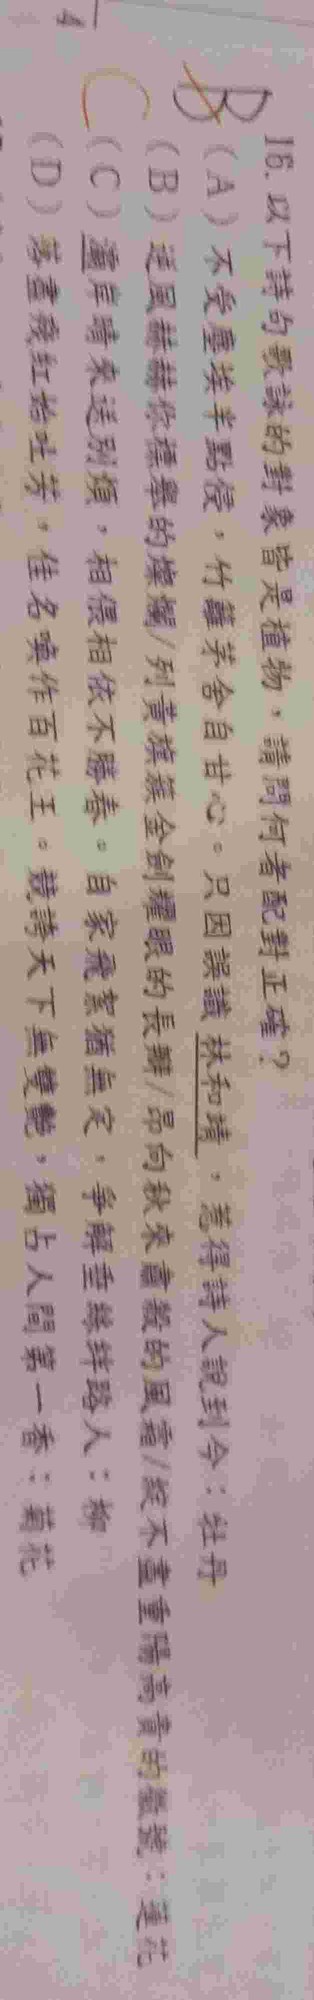 4
B
C
16. 以下詩句歌詠的對象皆是植物，請問何者配對正確？
（A）不受塵埃半點侵，竹籬茅舍自甘心。只因誤識林和靖，惹得詩人說到今：牡丹
（B）逆風赫赫你標舉的燦爛/列黃旗簇金劍耀眼的長瓣/昂向秋來肅殺的風霜/綻不盡重陽高貴的徽號：蓮花
（C）灞岸晴來送別頻，相偎相依不勝春。自家飛絮猶無定，爭解垂絲絆路人：柳
（D）落盡殘紅始吐芳，佳名喚作百花王。競誇天下無雙艷，獨占人間第一香：菊花